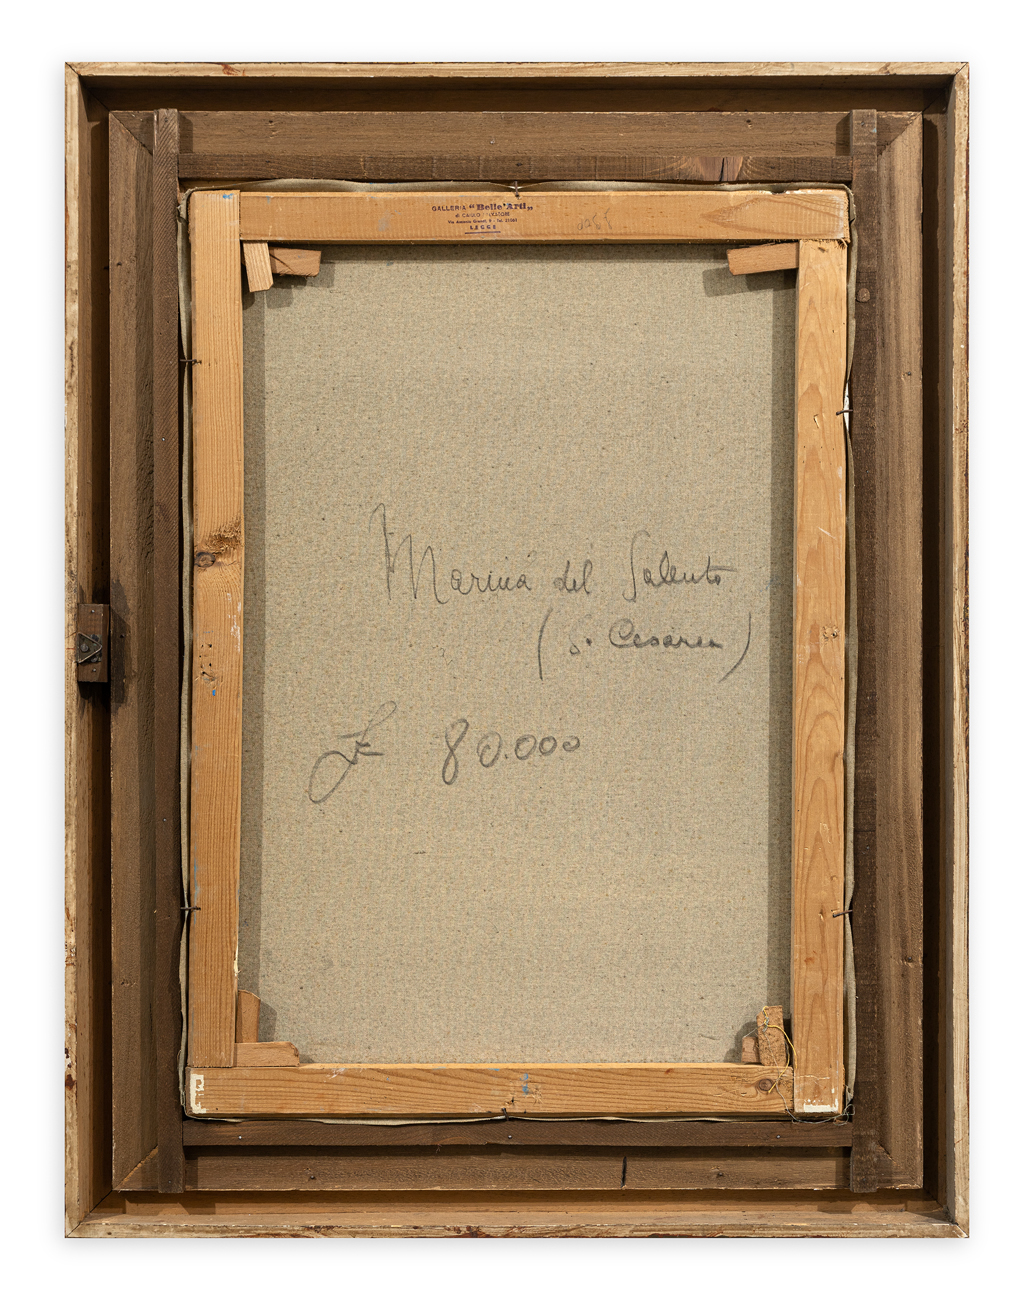 GALLERIA "Belle'Arti„
di CARLO
Via Antonio Gramsci, 9 - Tel. 21041
LECCE
Marina del Salento
(S. Cesarea)
£ 80.000